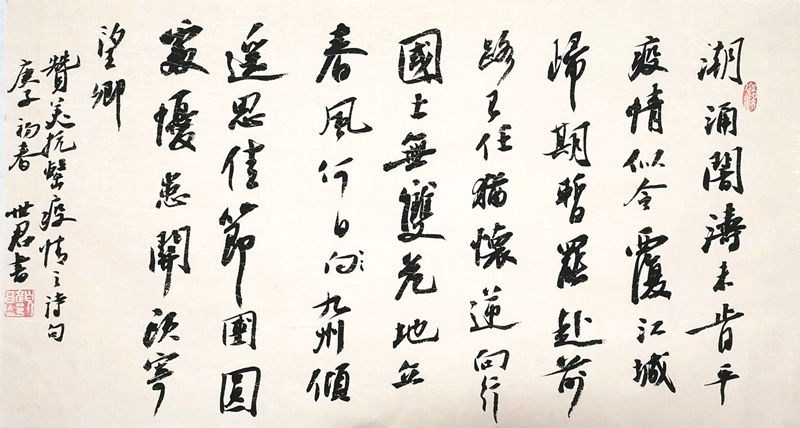 潮涌闇濤未肯平
疫情似令覆江城
歸期暫罷赴前
路己任猶懷逆向行
國士無雙危地立
春風何日向九州傾
遥思佳節團圓
處擾患開寧
望卿
贊美抗擊疫情之詩句
庚子初春 世君書